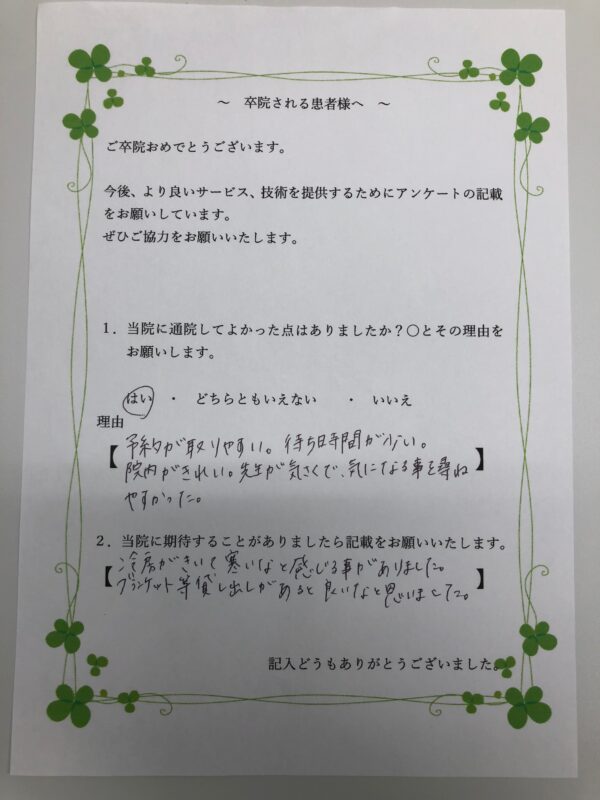 ～ 卒院される患者様へ ～
ご卒院おめでとうございます。
今後、より良いサービス、技術を提供するためにアンケートの記載
をお願いしています。
ぜひご協力をお願いいたします。
1．当院に通院してよかった点はありましたか？〇とその理由を
お願いします。
はい ・ どちらともいえない ・ いいえ
理由
【予約が取りやすい。待ち時間が少い。
院内がきれい。先生が気さくで、気になる事を尋ね】
やすかった。
2．当院に期待することがありましたら記載をお願いいたします。
冷房がきいて寒いなと感じる事がありました。
【ブランケット等貸し出しがあると良いなと思いました。】
記入どうもありがとうございました。